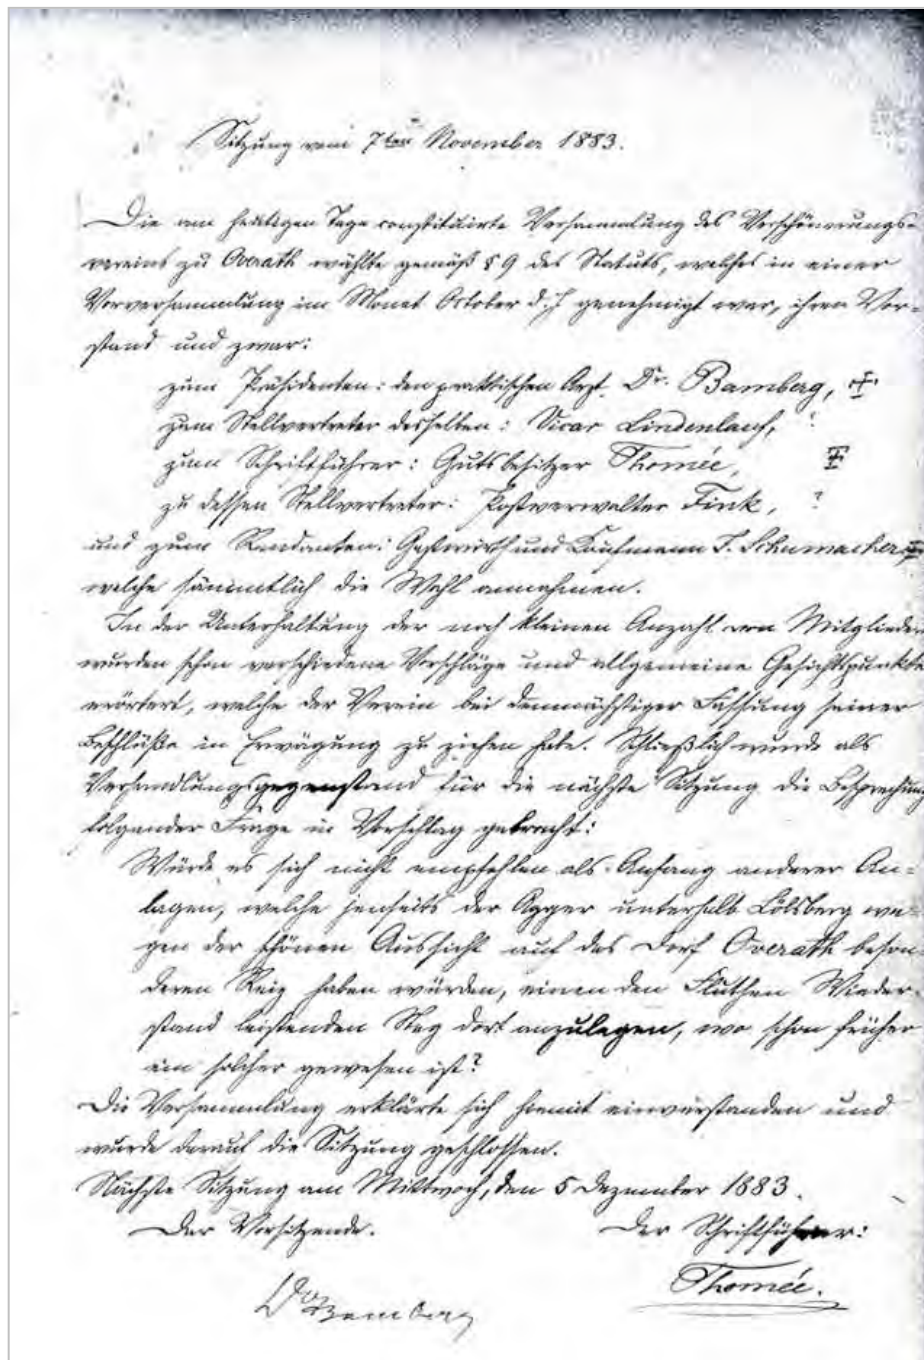 Sitzung vom 7ten November 1883.
Die am heutigen Tage constituirte Versammlung des Verschönerungs-
vereins zu Overath wählte gemäß § 9 des Statuts, welches in einer
Vorversammlung im Monat October d. J. genehmigt war, ihren Vor-
stand und zwar:
zum Präsidenten: den praktischen Arzt Dr. Bamberg, ‡
zum Stellvertreter desselben: Vicar Lindenlauf, ?
zum Schriftführer: Gutsbesitzer Thomée, ‡
zu dessen Stellvertreter: Postverwalter Fink, ?
und zum Rendanten: Gastwirth und Kaufmann F. Schumacher ‡
welche sämmtlich die Wahl annahmen.
In der Unterhaltung der noch kleinen Anzahl von Mitgliedern
wurden schon verschiedene Vorschläge und allgemeine Gesichtspunkte
erörtert, welche der Verein bei demnächstiger Fassung seiner
Beschlüße in Erwägung zu ziehen habe. Schließlich wurde als
Verhandlungsgegenstand für die nächste Sitzung die Besprechung
folgender Frage in Vorschlag gebracht:
Würde es sich nicht empfehlen als Anfang anderer An-
lagen, welche jenseits der Agger unterhalb Lölsberg we-
gen der schönen Aussicht auf das Dorf Overath beson-
deren Reiz haben würden, einen den Fluthen Wieder-
stand leistenden Steg dort anzulegen, wo schon früher
ein solcher gewesen ist?
Die Versammlung erklärte sich hiemit einverstanden und
wurde darauf die Sitzung geschlossen.
Nächste Sitzung am Mittwoch, den 5 Dezember 1883.
Der Vorsitzende. Der Schriftführer:
Dr Bamberg Thomée.